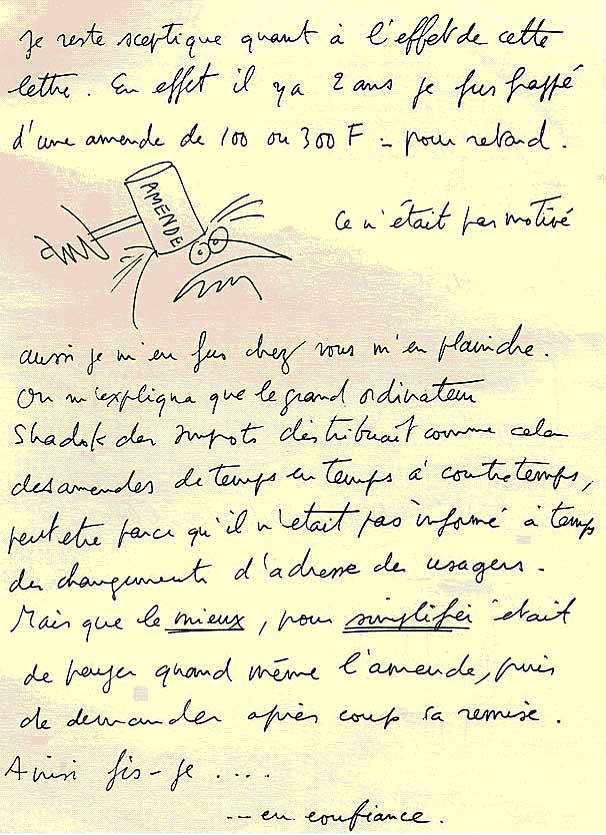 Je reste sceptique quant à l'effet de cette
lettre. En effet il y a 2 ans je fus frappé
d'une amende de 100 ou 300 F - pour retard.
AMENDE
Ce n'était pas motivé
aussi je m'en fus chez vous m'en plaindre.
On m'expliqua que le grand ordinateur
Shadok des Impots distribuait comme cela
des amendes de temps en temps à contretemps,
peut etre parce qu'il n'était pas informé à temps
des changements d'adresse des usagers.
Mais que le mieux, pour simplifier était
de payer quand même l'amende, puis
de demander après coup sa remise.
Ainsi fis-je ....
-- en confiance.